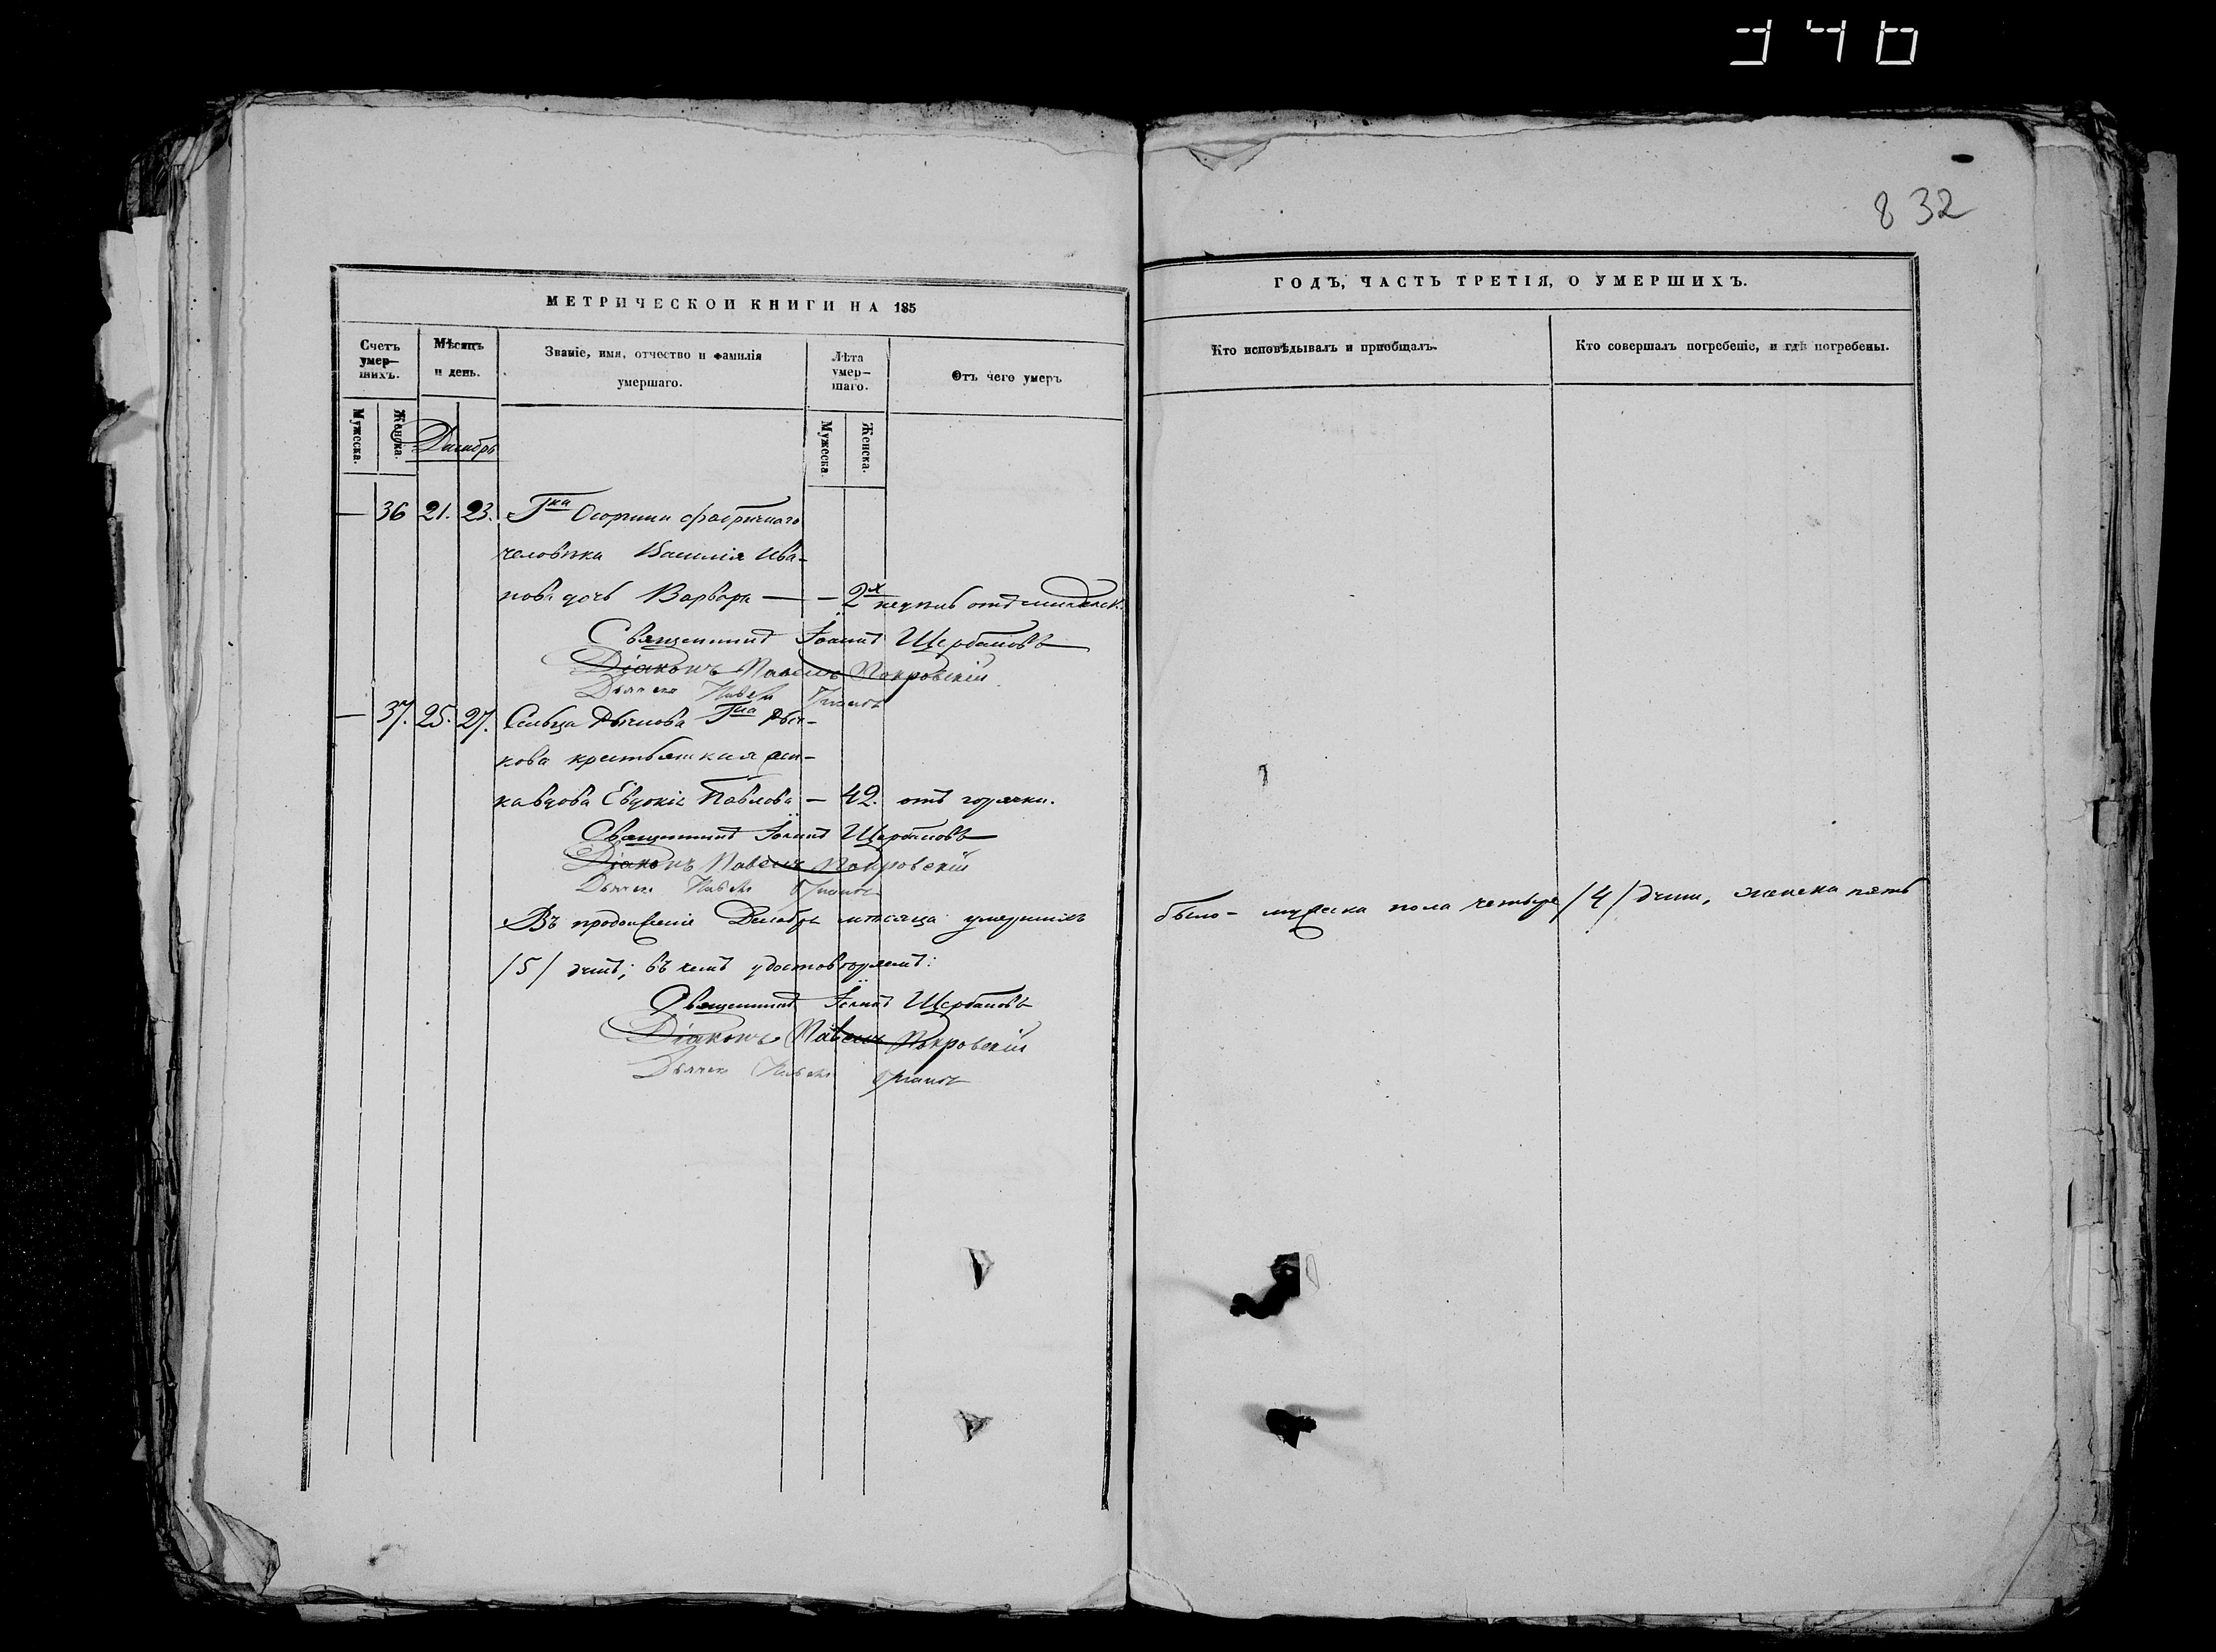 832
МЕТРИЧЕСКОЙ КНИГИ НА 185
ГОДЪ, ЧАСТЬ ТРЕТІЯ, О УМЕРШИХЪ.
Счетъ умер-
шихъ.
Мѣсяцъ
и день.
Званіе, имя, отчество и фамилія
умершаго.
Лѣта
умер-
шаго.
Отъ чего умеръ
Кто исповѣдывалъ и пріобщалъ.
Кто совершалъ погребеніе, и гдѣ погребены.
Мужеска.
Женска.
Декабрь
Мужеска
Женска.
— 36 21. 23. Гжи фабричнаго
человѣка Василія Ива-
нова дочь Варвара — — 2х недѣль отъ
Священникъ Іоаннъ Щербаковъ
Діаконъ Павелъ Покровскій
Дьячекъ
— 37. 25. 27. Сельца Гна
кова крестьянская
вдова Евдокія Павлова — 42. отъ горячки.
Священникъ Іоаннъ Щербаковъ
Діаконъ Павелъ Покровскій
Дьячекъ
Въ продолженіе Декабря мѣсяца умершихъ было – мужеска пола четыре /4/ души, женска пять
/5/ душъ; въ чемъ удостовѣряемъ:
Священникъ Іоаннъ Щербаковъ
Діаконъ Павелъ Покровскій
Дьячекъ